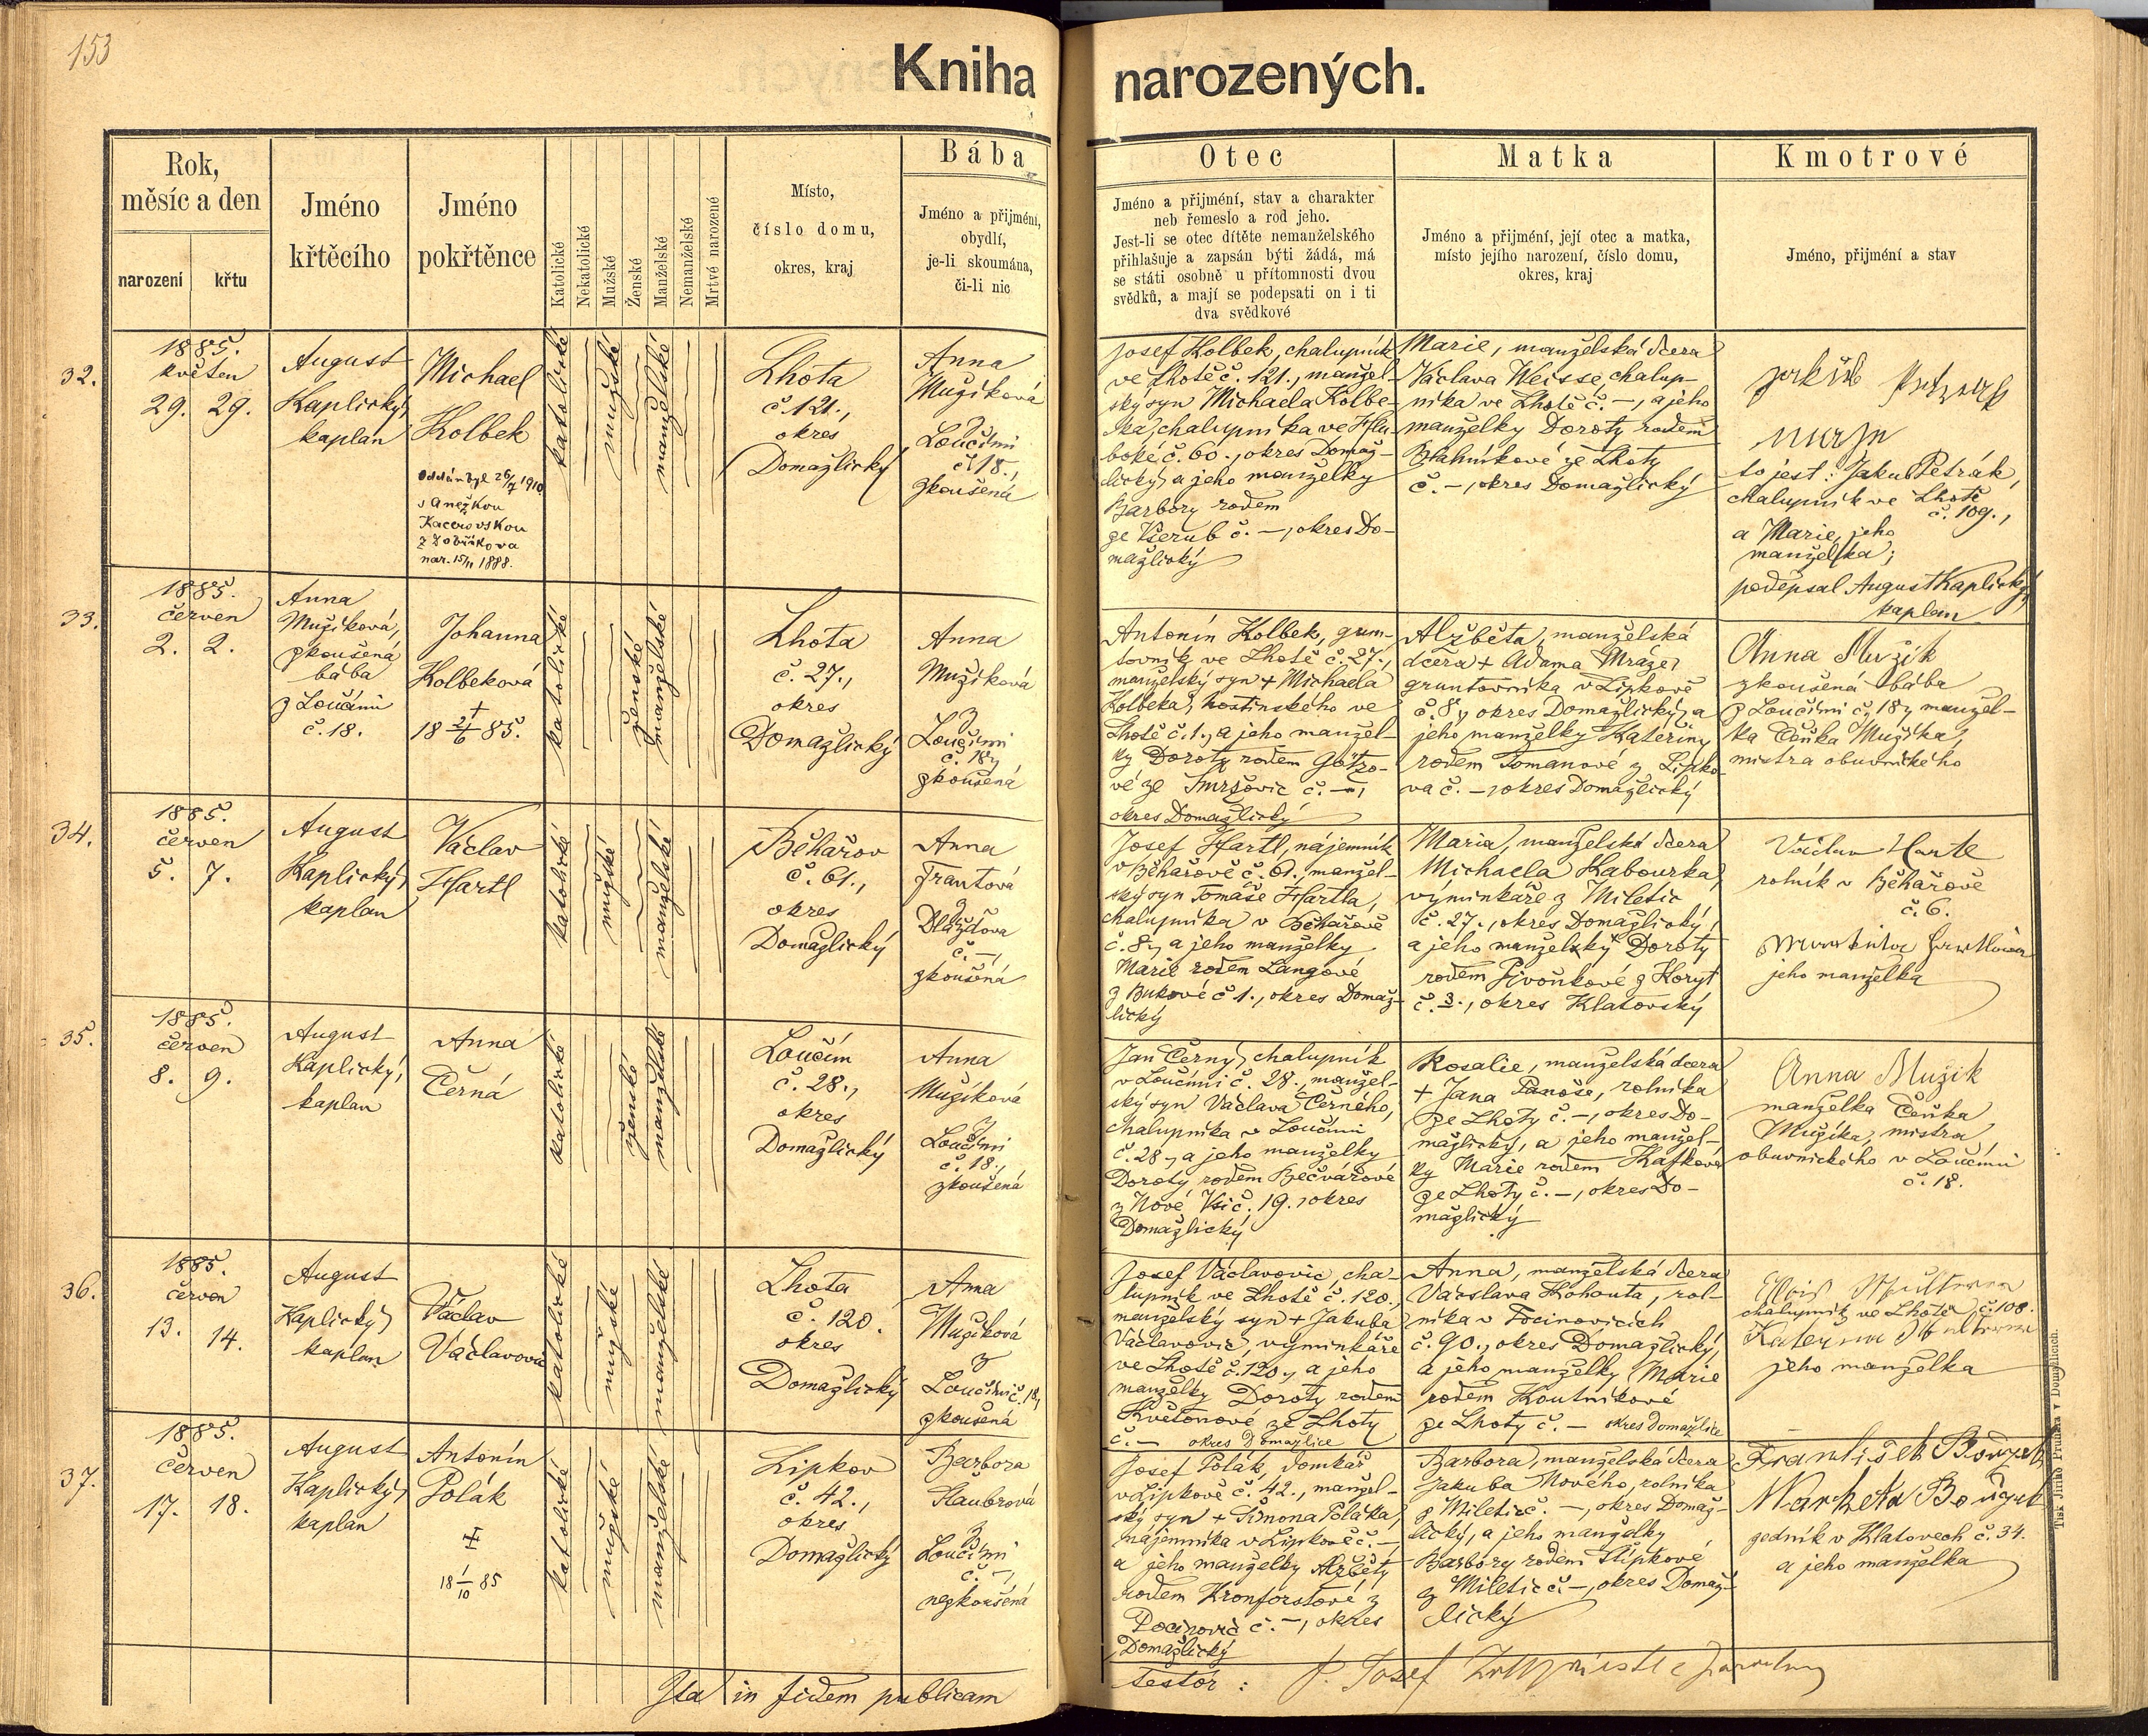 153
Kniha narozených.
Rok,
měsíc a den
narození
křtu
Jméno
křtěcího
Jméno
pokřtěnce
Katolické
Nekatolické
Mužské
Ženské
Manželské
Nemanželské
Mrtvé narozené
Místo,
číslo domu,
okres, kraj
Bába
Jméno a přijmení,
obydlí,
je-li skoumána,
či-li nic
Otec
Jméno a přijmení, stav a charakter
neb řemeslo a rod jeho.
Jest-li se otec dítěte nemanželského
přihlašuje a zapsán býti žádá, má
se státi osobně u přítomnosti dvou
svědků, a mají se podepsati on i ti
dva svědkové
Matka
Jméno a přijmení, její otec a matka,
místo jejího narození, číslo domu,
okres, kraj
Kmotrové
Jméno, přijmení a stav
32.
1885.
květen
29. 29.
August
Kaplický,
kaplan
Michael
Kolbek
Oddán byl 26/7 1910
s Anežkou
Kacerovskou
z Zobřikova
nar. 15/11 1888.
katolické
mužské
manželské
Lhota
č. 121.,
okres
Domažlický
Anna
Mužíková
z
Loučimi
č. 18.,
zkoušená
Josef Kolbek, chalupník
ve Lhotě č. 121., manžel-
ský syn Michaela Kolbe-
ka, chalupníka ve Hlu-
boké č. 60., okres Domaž-
lický, a jeho manželky
Barbory rodem
ze Všerub č. –, okres Do-
mažlický
Marie, manželská dcera
Václava Weisse, chalup-
níka ve Lhotě č. –, a jeho
manželky Doroty rodem
Blahníkové ze Lhoty
č. –, okres Domažlický
to jest: Jakub Petrák,
chalupník ve Lhotě
č. 109.,
a Marie, jeho
manželka;
podepsal August Kaplický,
kaplan
33.
1885.
červen
2. 2.
Anna
Mužíková,
zkoušená
bába
z Loučimi
č. 18.
Johanna
Kolbeková
+
18 21/6 85.
katolické
ženské
manželské
Lhota
č. 27.,
okres
Domažlický
Anna
Mužíková
z
Loučimi
č. 18.,
zkoušená
Antonín Kolbek, grun-
tovník ve Lhotě č. 27.,
manželský syn + Michaela
Kolbeka, hostinského ve
Lhotě č. 1., a jeho manžel-
ky Doroty rodem Götzo-
vé ze Smržovic č. –,
okres Domažlický
Alžběta, manželská
dcera + Adama Mráze,
gruntovníka v Lipkově
č. 8., okres Domažlický, a
jeho manželky Kateřiny
rodem Tomanové z Lipko-
va č. –, okres Domažlický
Anna Mužik
zkoušená bába
z Loučimi č. 18., manžel-
ka Čeňka Mužíka,
mistra obuvnického
34.
1885.
červen
5. 7.
August
Kaplický,
kaplan
Václav
Hartl
katolické
mužské
manželské
Běhařov
č. 61.,
okres
Domažlický
Anna
Frantová
z
Dlažďova
č. –,
zkoušená
Josef Hartl, nájemník
v Běhařově č. 61., manžel-
ský syn Tomáše Hartla,
chalupníka v Běhařově
č. 8., a jeho manželky
Marie rodem Langové
z Bukové č. 1., okres Domaž-
lický
Maria, manželská dcera
Michaela Kabourka,
výminkáře z Miletic
č. 27., okres Domažlický,
a jeho manželky Doroty
rodem Pivoňkové z Koryt
č. 3., okres Klatovský
Václav Hartl
rolník v Běhařově
č. 6.
jeho manželka
35.
1885.
červen
8. 9.
August
Kaplický,
kaplan
Anna
Černá
katolické
ženské
manželské
Loučim
č. 28.,
okres
Domažlický
Anna
Mužíková
z
Loučimi
č. 18.,
zkoušená
Jan Černý, chalupník
v Loučimi č. 28., manžel-
ský syn Václava Černého,
chalupníka v Loučimi
č. 28., a jeho manželky
Doroty rodem Bečvářové
z Nové Vsi č. 19., okres
Domažlický
Rosalie, manželská dcera
+ Jana Panoše, rolníka
ze Lhoty č. –, okres Do-
mažlický, a jeho manžel-
ky Marie rodem Kafkové
ze Lhoty č. –, okres Do-
mažlický
Anna Mužik
manželka Čeňka
Mužíka, mistra
obuvnického v Loučimi
č. 18.
36.
1885.
červen
13. 14.
August
Kaplický,
kaplan
Václav
Václavovic
katolické
mužské
manželské
Lhota
č. 120.
okres
Domažlický
Anna
Mužíková
z
Loučimi č. 18.,
zkoušená
Josef Václavovic, cha-
lupník ve Lhotě č. 120.,
manželský syn + Jakuba
Václavovic, výminkáře
ve Lhotě č. 120., a jeho
manželky Doroty rodem
Květoňové ze Lhoty
č. – okres Domažlice
Anna, manželská dcera
Václava Kohouta, rol-
níka v Pocinovicích
č. 90., okres Domažlický,
a jeho manželky Marie
rodem Koutníkové
ze Lhoty č. – okres Domažlice
chalupník ve Lhotě č. 108.
jeho manželka
37.
1885.
červen
17. 18.
August
Kaplický,
kaplan
Antonín
Polák
+
18 1/10 85
katolické
mužské
manželské
Lipkov
č. 42.,
okres
Domažlický
Barbora
Štaubrová
z
Loučimi
č. –,
nezkoušená
Josef Polák, domkář
v Lipkově č. 42., manžel-
ský syn + Šimona Poláka,
nájemníka v Lipkově č. –,
a jeho manželky Alžběty
rodem Kronforstové z
Pocinovic č. –, okres
Domažlický
Barbora, manželská dcera
Jakuba Nového, rolníka
z Miletic č. –, okres Domaž-
lický, a jeho manželky
Barbory rodem Šlípkové
z Miletic č. –, okres Domaž-
lický
František Bouzek
Marketa Bouzek
zedník v Klatovech č. 34.
a jeho manželka
Ita in fidem publicam
testor: P. Josef
Tisk Jiřího Prunara v Domažlicích.